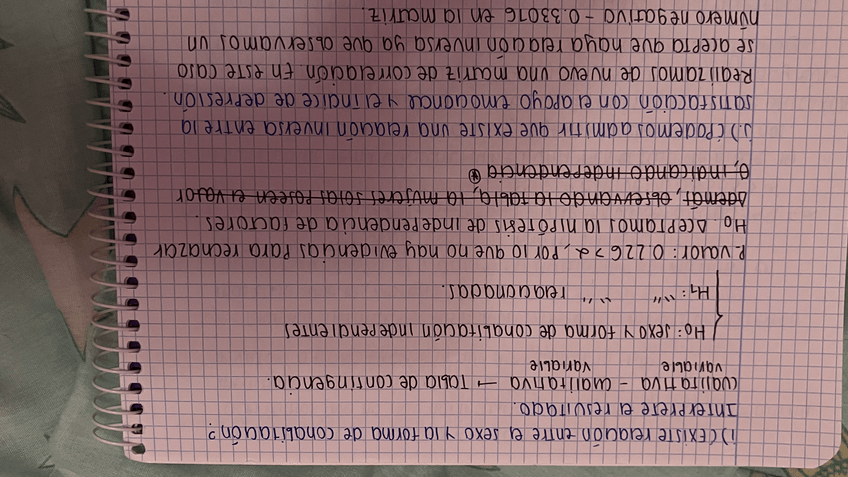 i) ¿Existe relación entre el sexo y la forma de cohabitación?
Interprete el resultado.
Cualitativa - cualitativa → Tabla de contingencia.
variable variable
H0: sexo y forma de cohabitación independientes
H1: "" "" relacionadas.
P. valor: 0.226 > α, por lo que no hay evidencias para rechazar
H0. Aceptamos la hipótesis de independencia de factores.
Además, observando la tabla, la mujeres solas poseen el valor
0, indicando independencia
j) ¿Podemos admitir que existe una relación inversa entre la
satisfacción con el apoyo emocional y el índice de depresión.
Realizamos de nuevo una matriz de correlación. En este caso
se acepta que haya relación inversa ya que observamos un
número negativo -0.33016 en la matriz.